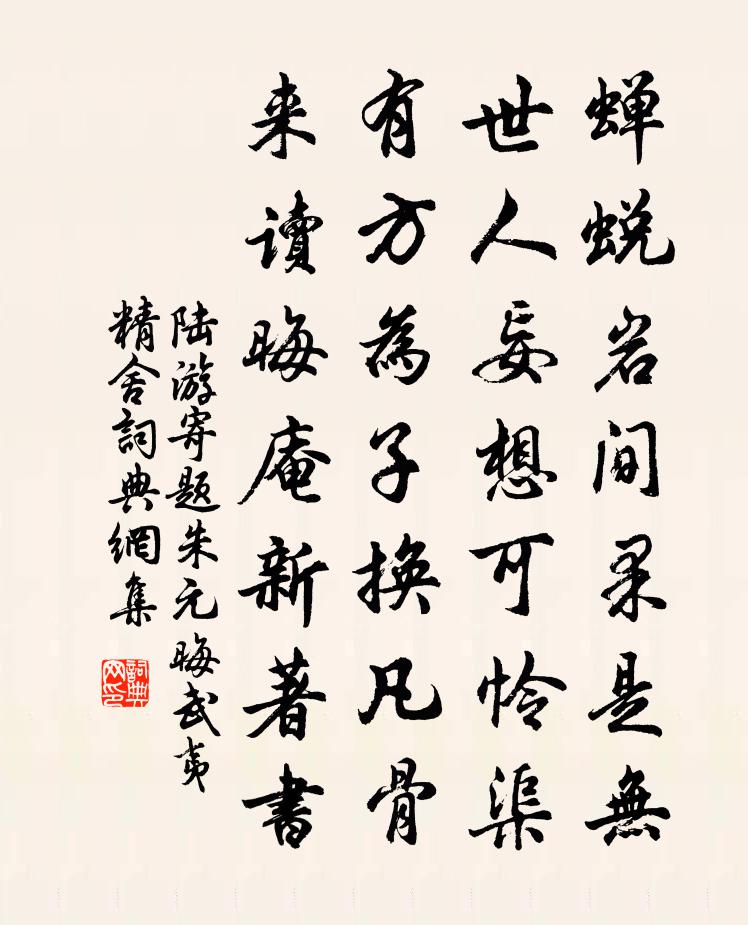 蝉蜕岩间果是無
世人妄想可怜渠
有方為子换凡骨
来讀晦庵新著書
陆游寄题朱元晦武夷
精舍詞典網集
詞典网印